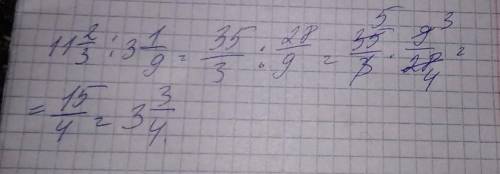 11 2/3 : 3 1/9 = 35/3 : 28/9 = 35/3 · 9/28 5 3 4 =
= 15/4 = 3 3/4